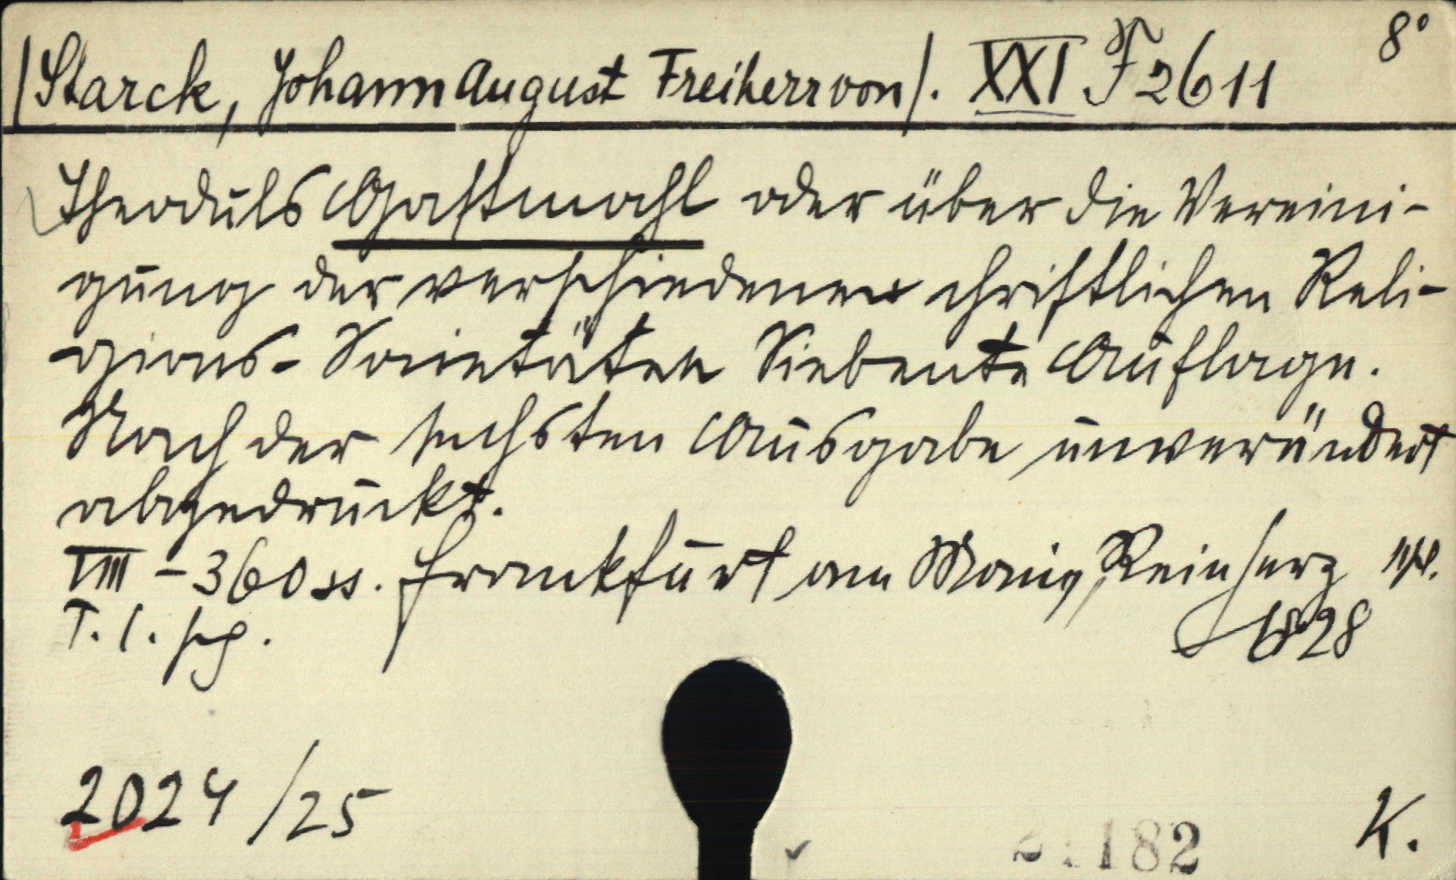 /Starck, Johann August Freiherr von/. XXI F 2611 8°
Theoduls Gastmahl oder über die Vereini-
gung der verschiedenen christlichen Reli-
gions-Societäten Siebente Auflage.
Nach der sechsten Ausgabe unverändert
abgedruckt.
VIII - 360 ss. Frankfurt am Main, Reinherz
1828
2024/25
182
K.